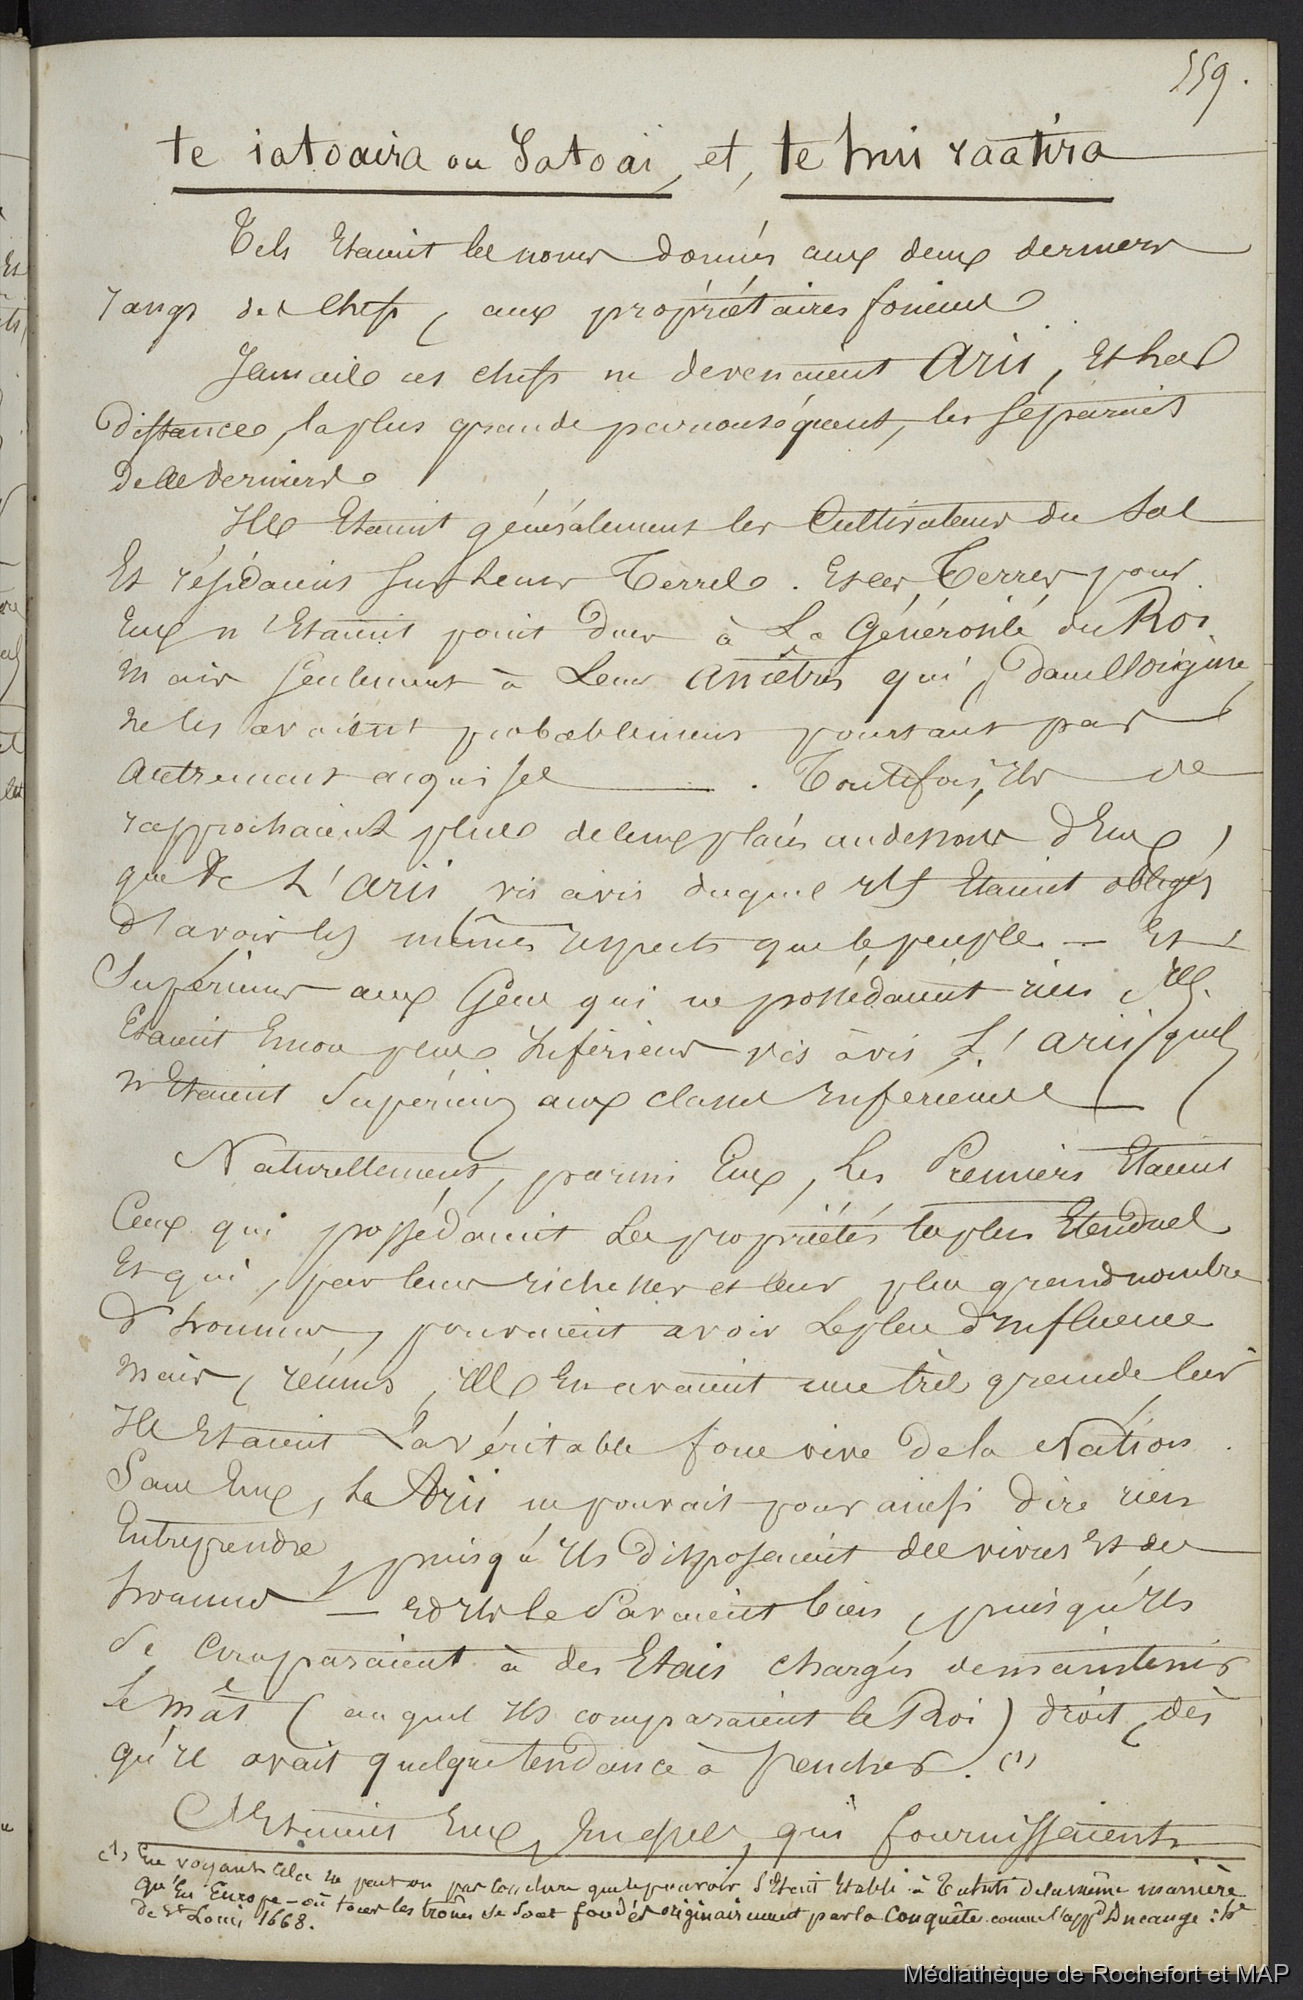 559.
te iatoaira ou Iatoaï, et, te hui raatira
Tels Etaient les noms donnés aux deux derniers
rangs des Chefs, aux propriétaires fonciers
Jamais ces chefs ne devenaient Arii, Et la
distance, la plus grande par conséquent, les séparait
de ce dernier
Ils Etaient généralement les Cultivateurs du Sol
Et résidaient sur leurs Terres. Et ces Terres, pour
Eux n'Etaient point dues à La Générosité du Roi
mais seulement à Leurs Ancêtres qui, dans l'origine
ne les avaient probablement pourtant pas
autrement acquises. Toutefois, Ils se
rapprochaient plus de ceux placés au dessous d'Eux,
que de L'arii vis à vis duquel Ils Etaient obligés
d'avoir les mêmes respects que le peuple. — Et
Supérieurs aux Gens qui ne possédaient rien, Ils
Etaient Encor plus Inférieurs vis à vis L'arii, qu'ils
n'Etaient Supérieurs aux classes inférieures
Naturellement, parmi Eux, les Premiers Etaient
Ceux qui possédaient Les propriétés les plus Etendues
Et qui, par leurs richesses et leur plus grand nombre
d'hommes, pouvaient avoir Le plus d'Influence
mais, réunis, Ils En avaient une très grande, car
Ils Etaient La véritable force vive de la Nation.
Sans Eux, le Arii ne pouvait pour ainsi dire rien
Entreprendre, puisqu'Ils Disposaient des vivres Et des
hommes — Et Ils le Savaient bien, puisqu'Ils
se comparaient à des Etais chargés de maintenir
le mât (auquel Ils comparaient le Roi) droit, dès
qu'Il avait quelque tendance à pencher. (1)
C'Etaient Eux, En effet, qui fournissaient
(1) En voyant cela ne peut on pas conclure que le pouvoir s'Etait Etabli à Tahiti de la même manière
qu'En Europe — où tous les trônes se sont fondés originairement par la Conquête comme l'app.d Ducange: h.re
de St Louis 1668.
Médiathèque de Rochefort et MAP